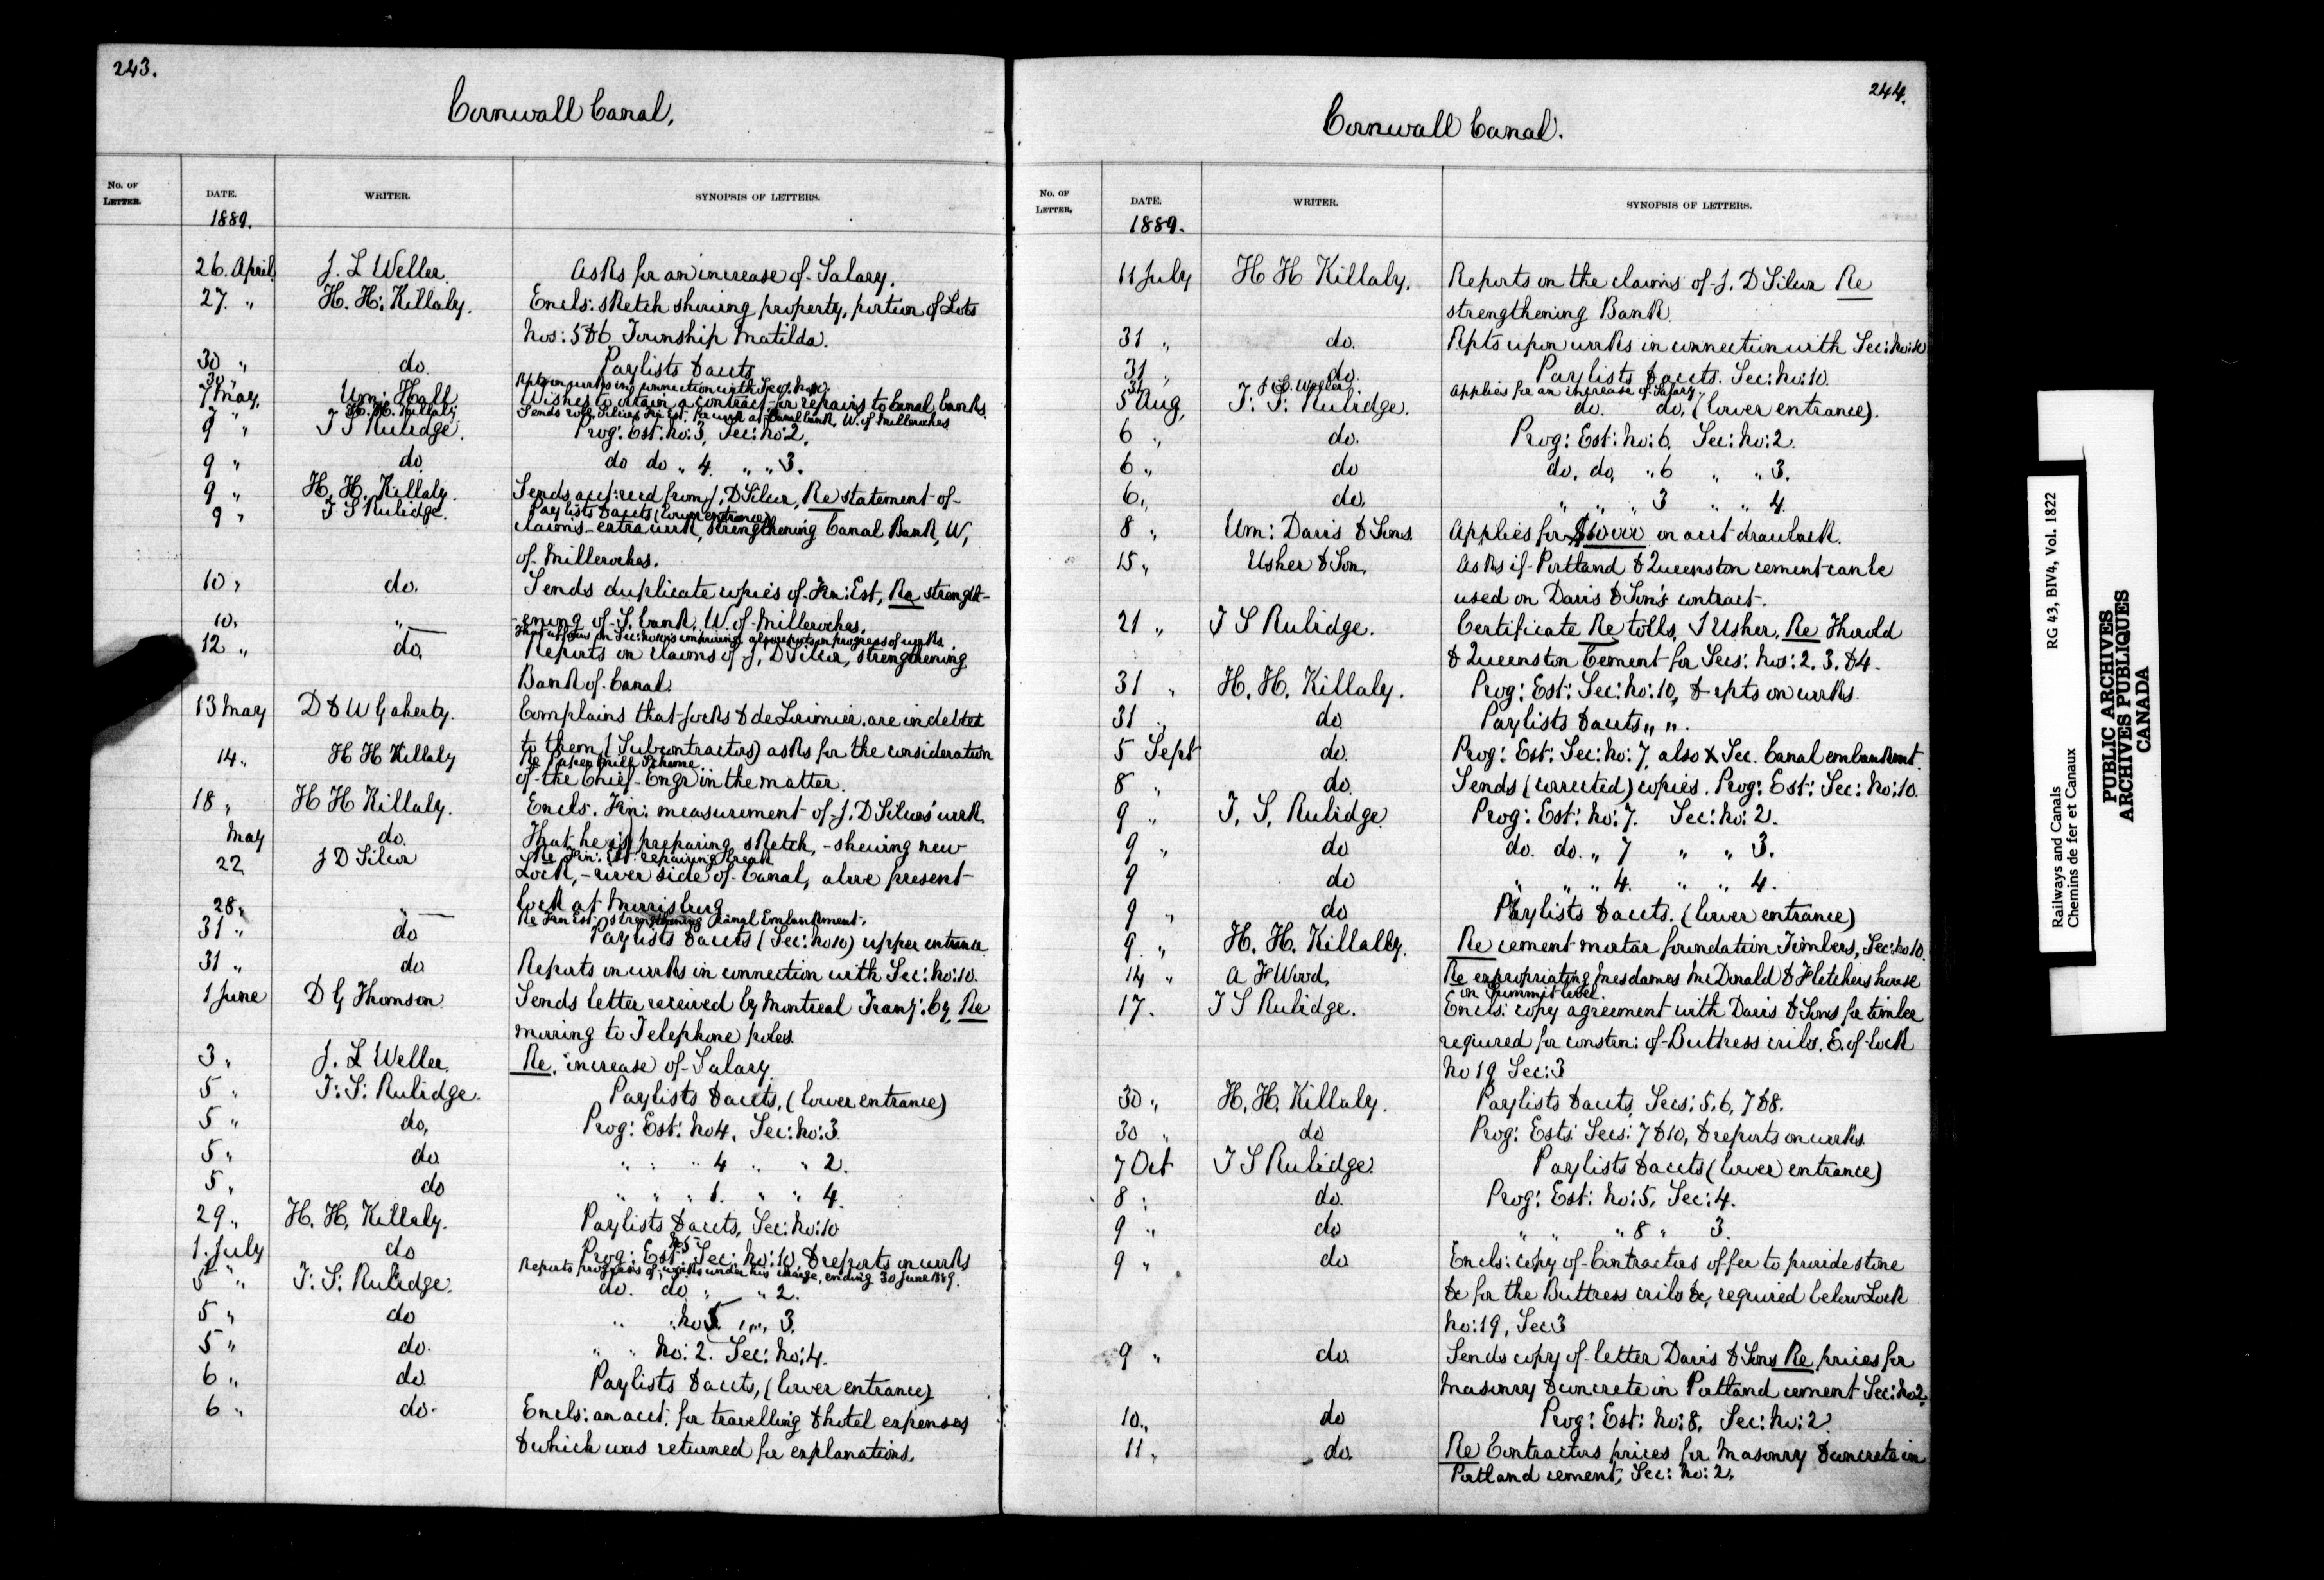 243.
Cornwall Canal.
No. OF LETTER. DATE. WRITER. SYNOPSIS OF LETTERS.
1889.
26. April J. L Weller. Asks for an increase of Salary.
27. " H. H. Killaly. Encls: sketch showing property, portion of Lots
Nos: 5 & 6 Township Matilda.
30 " do. Paylists & accts
30 " Rpts on works in connection with Sec: No: 10.
7 May, Wm: Hall Wishes to obtain a contract for repairs to Canal banks.
9 " H. H. Killaly Sends Fin. Est. for work at Canal bank, W. of Milleroches
9 " T S Rubidge. Prog: Est: No: 3, Sec: No: 2.
9 " do do do " 4. " " 3.
9 " H. H. Killaly. Sends acct: recd from J. D Silcox, Re statement of
9 " T S Rubidge. Paylists & accts (lower entrance)
claims – extra work, strengthening Canal Bank, W,
of Milleroches.
10 " do. Sends duplicate copies of Fin: Est, Re strength-
-ening of S. bank, W. of Milleroches.
10. "
12 " do. Reports on claims of J. D Silcox, strengthening
Bank of Canal.
13 May D & W Gaherty. Complains that Jocks & de Lorimier are indebted
to them (Subcontractors) asks for the consideration
14 " H H Killaly Re Paper Mill Scheme
of the Chief Engr in the matter.
18 " H H Killaly. Encls. Fin: measurement of J. D Silcox's work.
May do. That he is preparing sketch, – shewing new
22 J D Silcox Re Fin: Est: repairing break
Lock, – river side of Canal, above present
lock at Morrisburg
28 " " Re Fin Est: strengthening Canal Embankment.
31 " do Paylists & accts (Sec: No 10) upper entrance
31 " do. Reports on works in connection with Sec: No: 10.
1 June D G Thomson Sends letter received by Montreal Transj: Cy, Re
mooring to Telephone poles.
3 " J. L Weller. Re, increase of Salary
5 " T: S: Rubidge. Paylists & accts, (lower entrance)
5 " do, Prog: Est: No 4, Sec: No: 3.
5 " do " " " 4 " " 2.
5 " do " " " 1. " " 4.
29 " H. H. Killaly. Paylists & accts, Sec: No: 10
1. July do Prog: Est: Sec: No: 10, & reports on works
Reports progress of works under his charge, ending 30 June 1889.
5 " T: S: Rubidge. do. do " " 2.
5 " do " " No 5. " " 3.
5 " do. " " No: 2. Sec: No: 4.
6 " do. Paylists & accts, (lower entrance)
6 " do. Encls: an acct. for travelling & hotel expenses
& which was returned for explanations.
244.
Cornwall Canal.
No. OF LETTER. DATE. WRITER. SYNOPSIS OF LETTERS.
1889.
11 July H H Killaly. Reports on the claims of J. D Silcox Re
strengthening Bank.
31 " do. Rpts upon works in connection with Sec: No: 10
31 " do. Paylists & accts. Sec: No: 10.
31 J L Weller. Applies for an increase of Salary
5 Aug, T: S: Rubidge. do. do, (lower entrance).
6 " do. Prog: Est: No: 6, Sec: No: 2.
6 " do do. do, " 6 " " 3.
6 " do. " " " 3 " " 4.
8 " Wm: Davis & Sons. Applies for $10 000 on acct drawback.
15 " Usher & Son. Asks if Portland & Queenston cement can be
used on Davis & Son's contract.
21 " T S Rubidge. Certificate Re tolls, J Usher, Re Thorold
& Queenston Cement for Secs: Nos: 2. 3. & 4.
31 " H. H. Killaly. Prog: Est: Sec: No: 10, & rpts on works.
31 " do Paylists & accts " ".
5 Sept do. Prog: Est: Sec: No: 7, also X Sec. Canal embankmt.
8 " do. Sends (corrected) copies. Prog: Est: Sec: No: 10.
9 " T. S. Rubidge. Prog: Est: No: 7. Sec: No: 2.
9 " do do. do. " 7 " " 3.
9 do " " " 4. " " 4.
9 " do Paylists & accts. (lower entrance)
9 " H. H. Killally. Re cement mortar foundation Timbers, Sec: No 10.
14 " A F Wood, Re expropriating Mesdames McDonald & Fletchers house
on Summit level.
17. T S Rubidge. Encls: copy agreement with Davis & Sons for timber
required for constrn: of Buttress cribs. E. of Lock
No 19 Sec: 3
30 " H. H. Killaly. Paylists & accts, Secs: 5, 6, 7 & 8.
30 " do Prog: Ests: Secs: 7 & 10, & reports on works.
7 Oct T S Rubidge. Paylists & accts (lower entrance)
8 " do. Prog: Est: No: 5, Sec: 4.
9 " do " " " 8 " 3.
9 " do Encls: copy of Contractors offer to provide stone
&c for the Buttress cribs &c, required below Lock
No: 19, Sec 3
9 " do. Sends copy of letter Davis & Sons Re prices for
masonry & concrete in Portland cement Sec: No 2.
10 " do Prog: Est: No: 8, Sec: No: 2.
11 " do. Re Contractors prices for Masonry & concrete in
Portland cement, Sec: No: 2.
Railways and Canals RG 43, BIV4, Vol. 1822
Chemins de fer et Canaux
PUBLIC ARCHIVES
ARCHIVES PUBLIQUES
CANADA